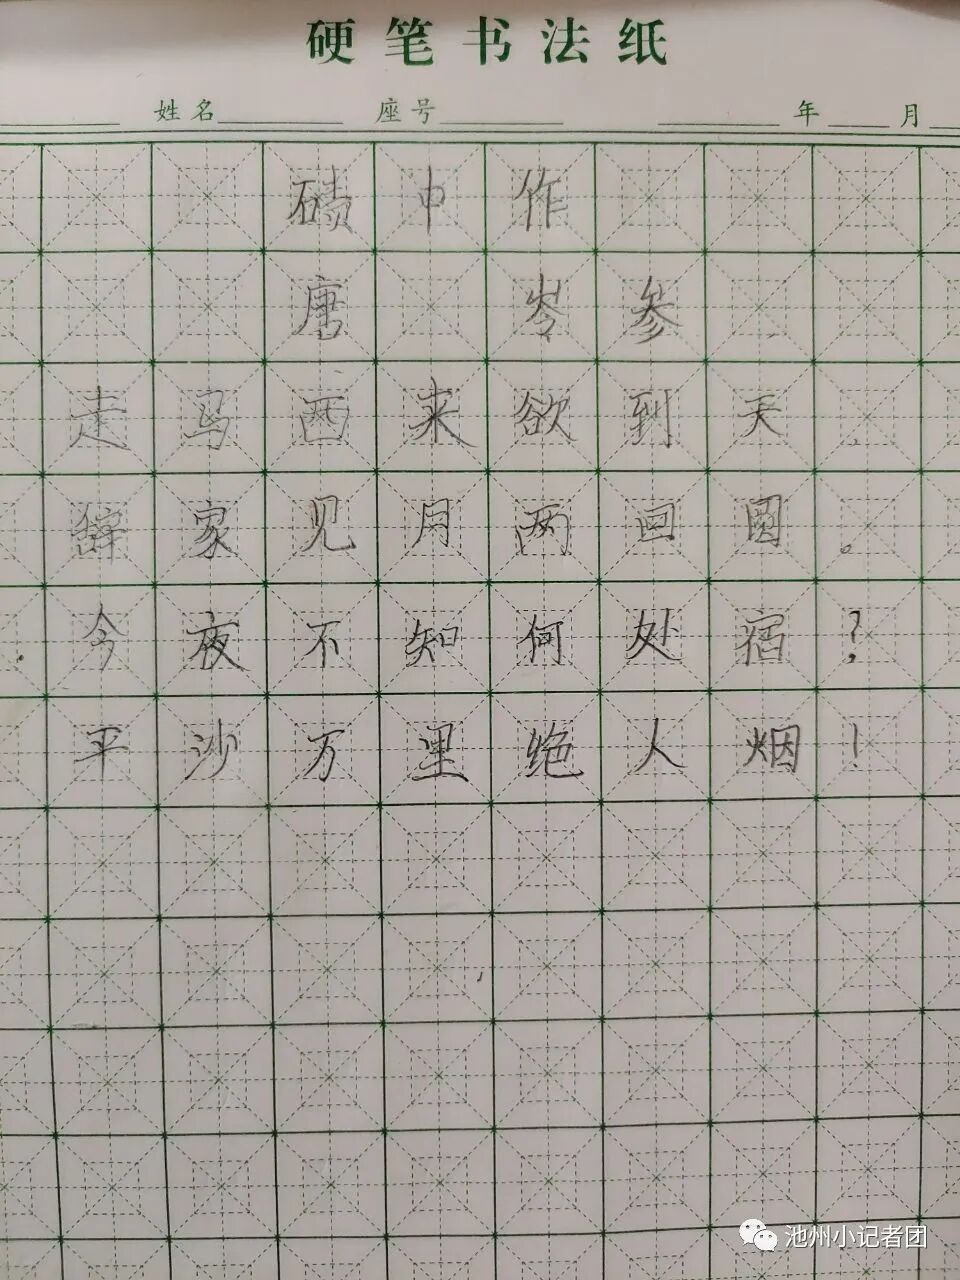 硬笔书法纸
姓名 座号 年 月
碛中作
唐 岑参
走马西来欲到天,
辞家见月两回圆。
今夜不知何处宿?
平沙万里绝人烟!
池州小记者团